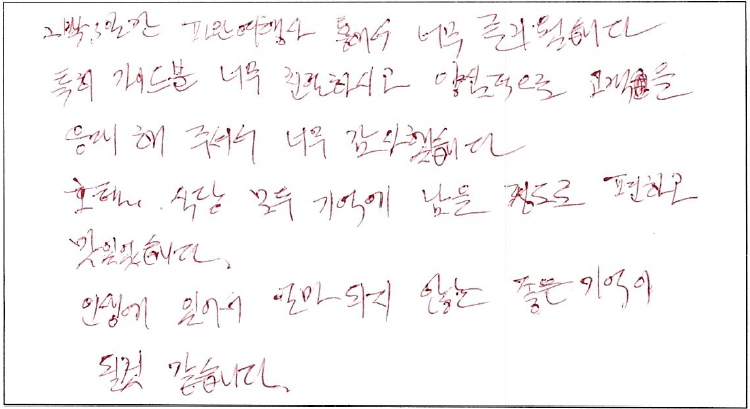 2박3일간 여행사 통해서 너무 즐거웠습니다
특히 가이드분 너무 친절하시고 양심적으로 고객을
응대 해 주셔서 너무 감사했습니다
호텔, 식당 모두 기억에 남을 정도로 편하고
맛있었습니다.
인생에 있어서 얼마 되지 않는 좋은 기억이
될것 같습니다.